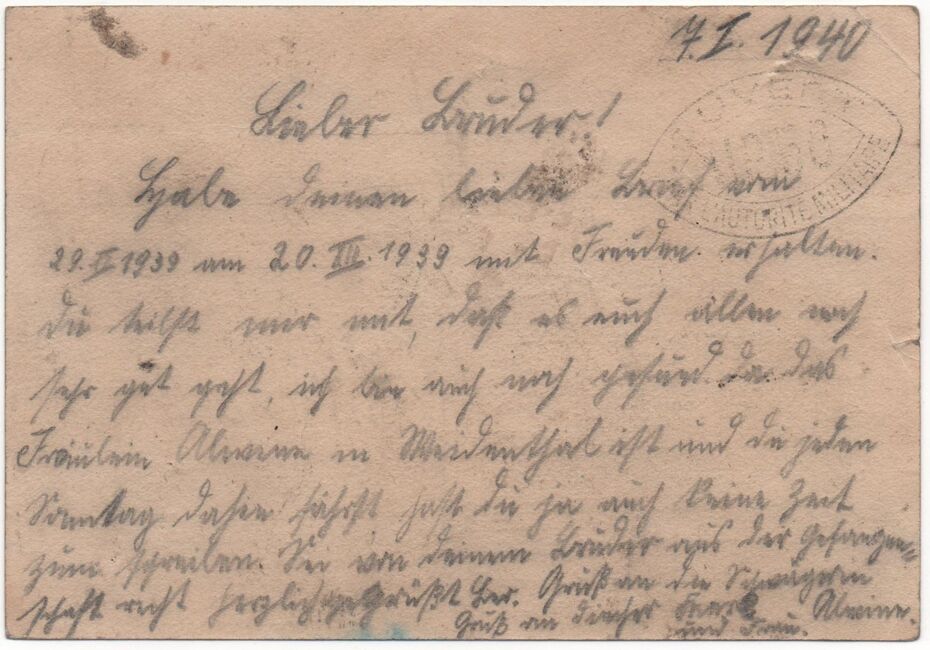 7.I.1940
Lieber Bruder!
Habe deinen lieben Brief vom
29.II 1939 am 20.XII.1939 mit Freuden erhalten.
Du teilst mir mit, daß es euch allen noch
sehr gut geht, ich bin auch noch gesund. Da das
Fräulein Alwine in Weidenthal ist und du jeden
Sonntag dahin fährst hast du ja auch keine Zeit
zum schreiben. Sei von deinem Bruder aus der Gefangen=
schaft recht herzlich gegrüßt Gruß an die Schwägerin
Alwine.
Gruß an
und Frau.
AUTORITÉ MILITAIRE